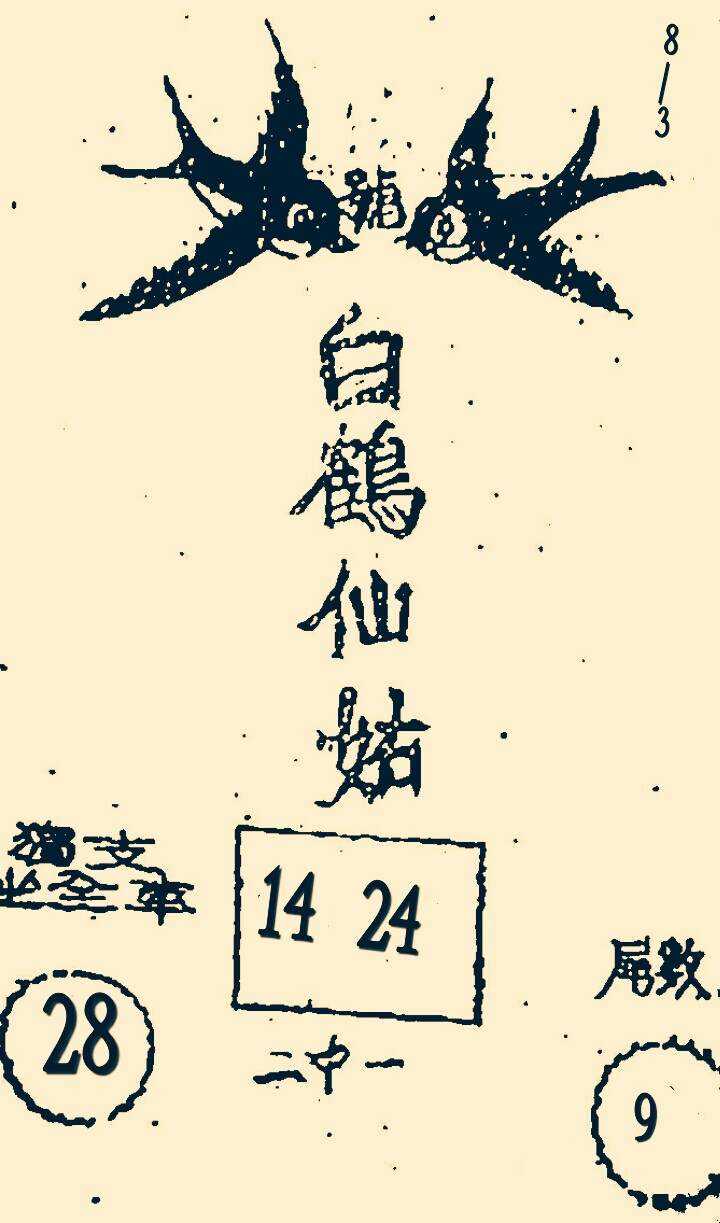 8
/
3
龍
白
鶴
仙
姑
獨支
坐全車
14 24
28
尾數
二中一
9